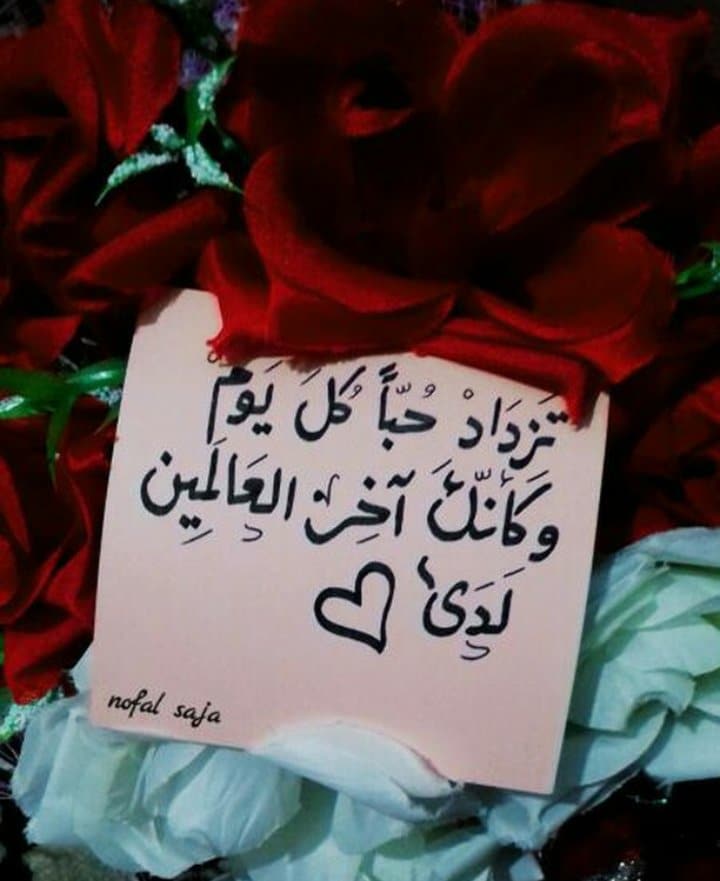 تَزدَادْ حُبّاً كُلَ يَومْ
وكَأنّكَ آخِر العَالَمِين
لَدَىٰ
nofal saja